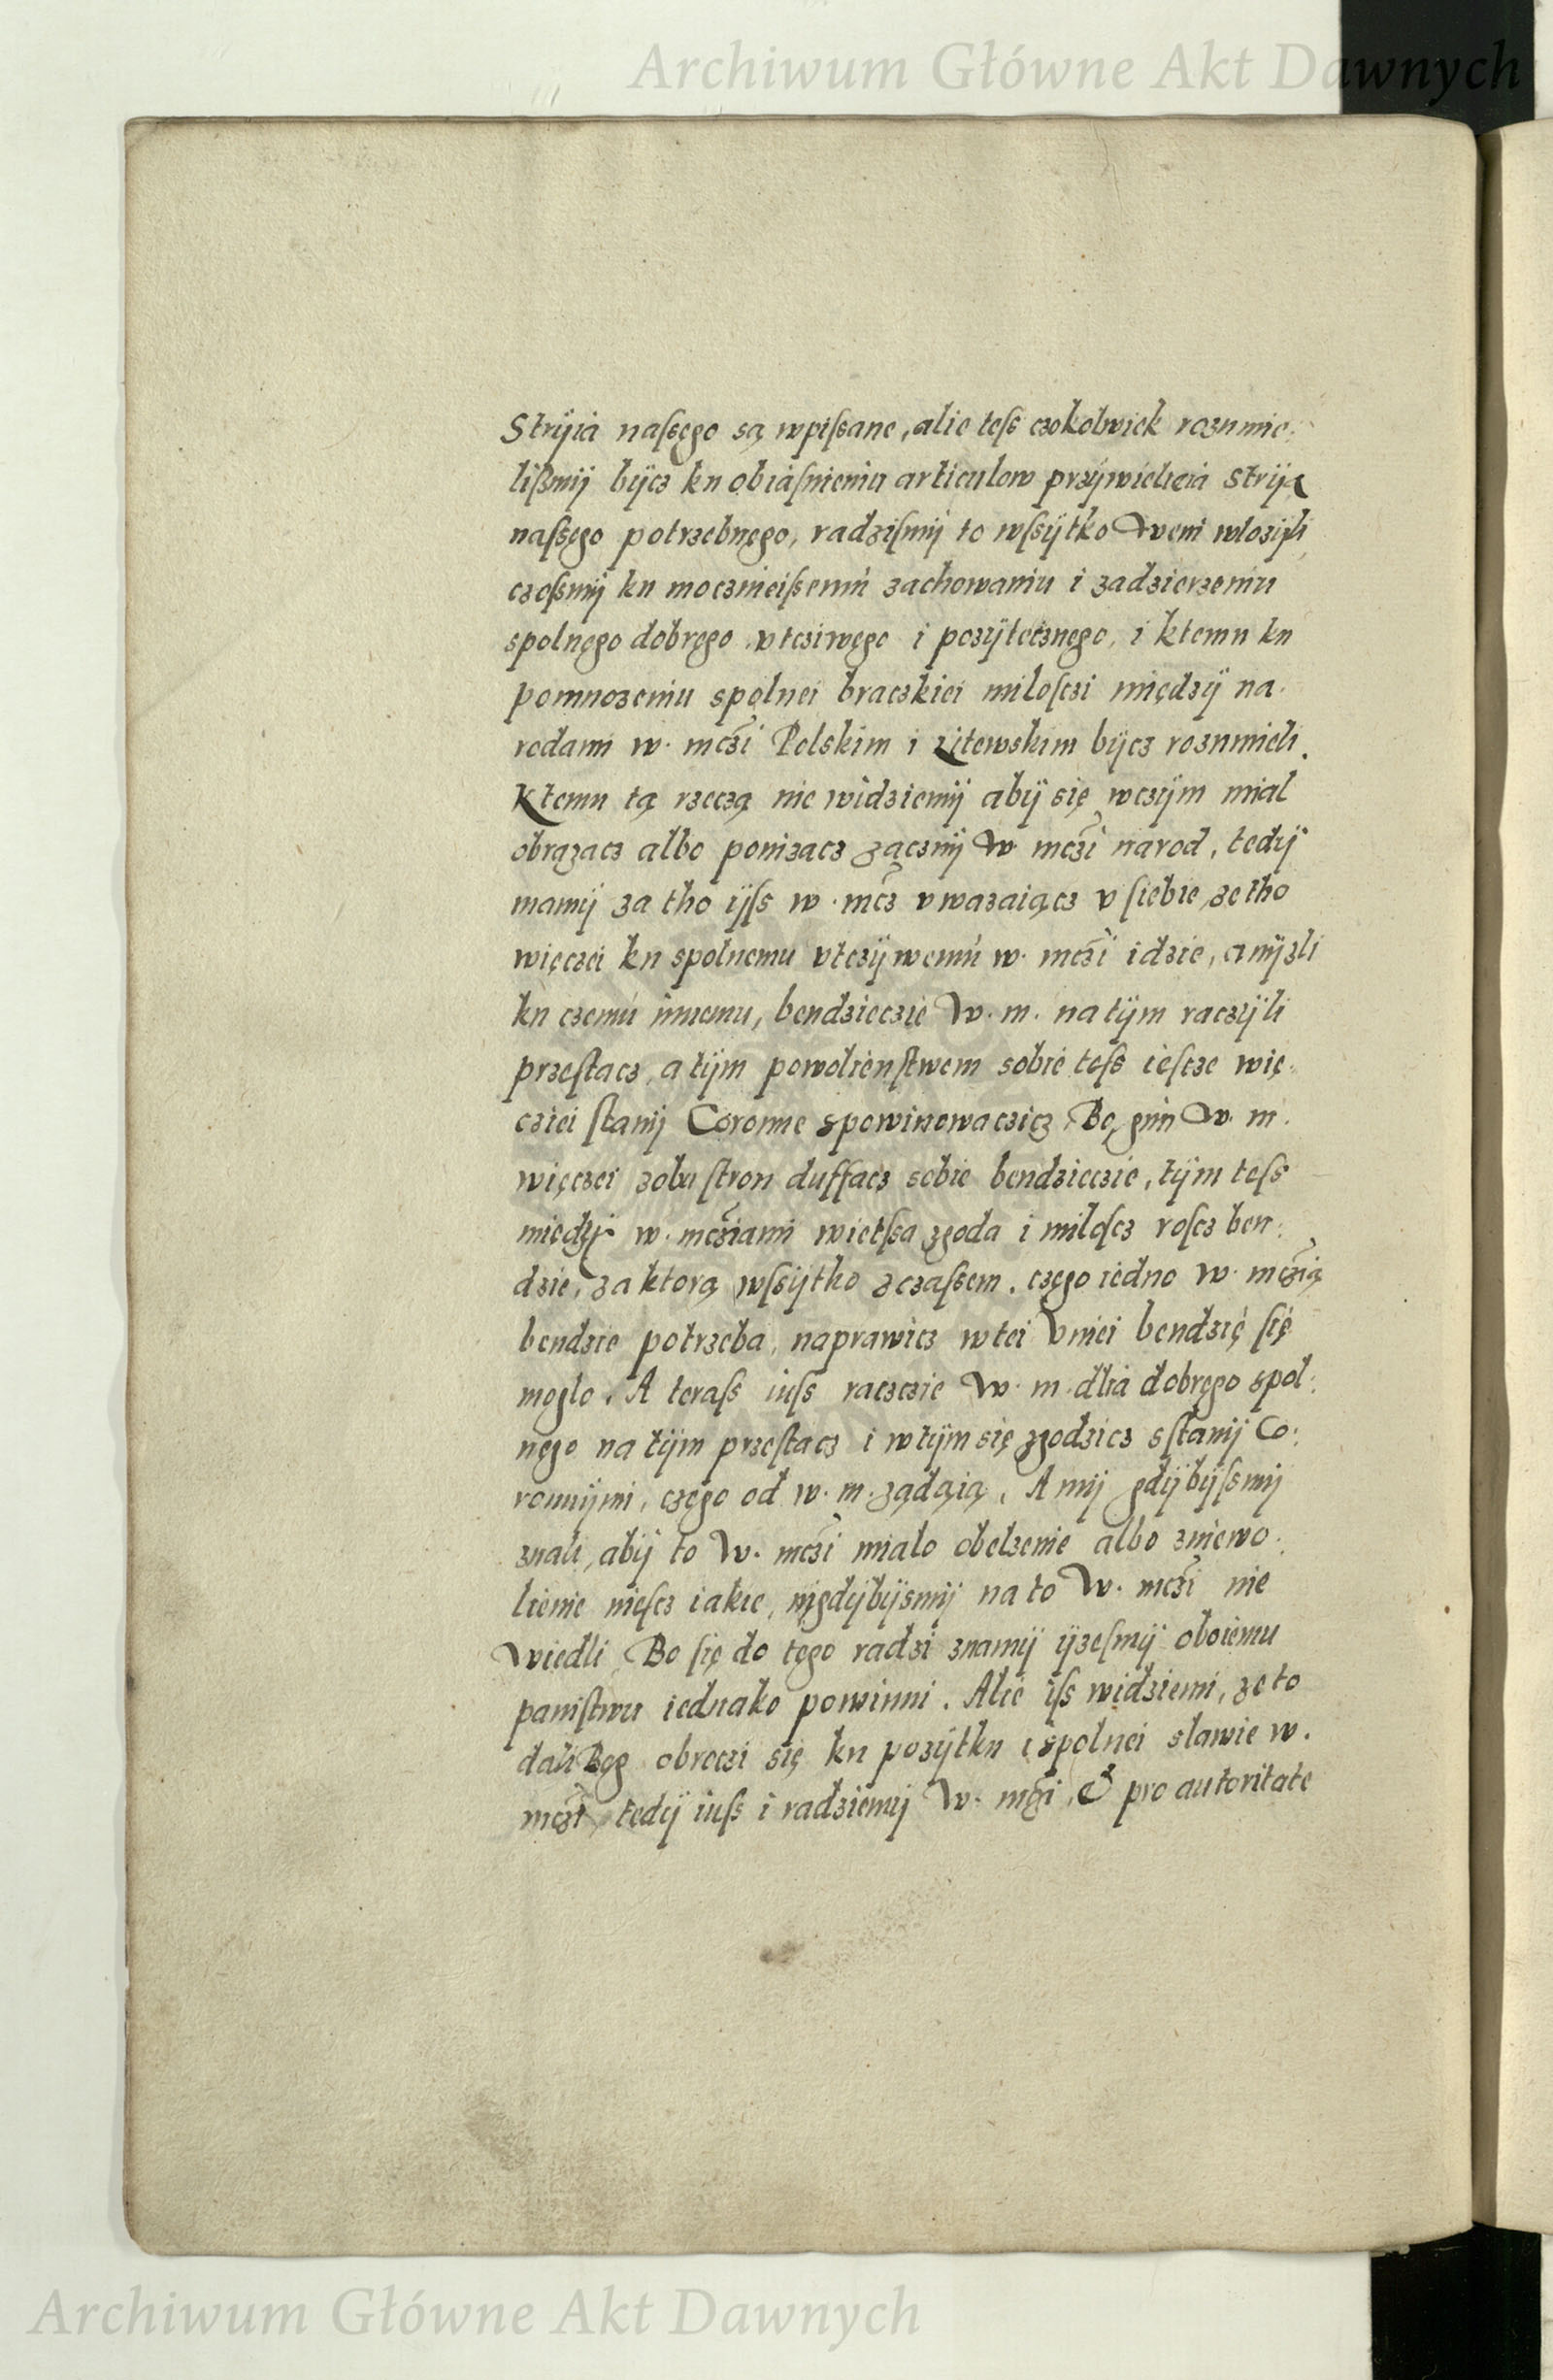 Archiwum Główne Akt Dawnych
Strÿia naſsęgo są wpiſsane, alie teſs czokolwiek rozumie-
liſzmÿ bÿcz ku obiaſnieniu articulow przÿwielieia Strÿia
naſsęgo potrzebnęgo, radziſmÿ to wſsÿtko weni wlozÿli
czoſsmÿ ku moczmieiſsemu zachowaniu i zadzierzeniu
spolnęgo dobręgo, vtcziwęgo i pozÿtecznęgo, i ktemu ku
pomnozeniu spolnei braczkiei miloſczi międzÿ na-
rodami w. mczi Polskim i Litewskim bÿcz rozumieli.
Ktemu tą rzeczą nie widziemÿ abÿ się wczÿm mial
obrązacz albo ponizacz zącznÿ w. mczi narod, tedÿ
mamÿ za tho ÿſs w. mcz vwazaiącz v ſiebie, ze tho
więczei ku spolnemu vtczÿwemu w. mczi idzie, anÿzli
ku czemu innemu, bendzieczie W. m. na tÿm raczÿli
przeſtacz, a tÿm powolienſtwem sobie teſs ieſcze wię-
cziei ſtanÿ Coronne spowinowaczicz, Bo gim W. m.
więczei zobu ſtron duffacz sobie bendzieczie, tÿm teſs
międzÿ w. mcziami wietſsa zgoda i miloſcz roſcz ben-
dzie, za ktorą wſsÿtko z czaſsem, częgo iedno w. mczią
bendzie potrzeba, naprawicz w tei Vniei bendzię ſię
moglo. A teraſs iuſs raczczie W. m. dlia dobręgo spol-
nęgo na tÿm przeſtacz i w tÿm się zgodzicz s ſtanÿ Co-
ronnÿmi, częgo od w. m. ządąią. A mÿ gdÿbÿſsmÿ
znali, abÿ to W. mczi mialo obelzenie albo zniewo-
lienie nieſcz iakie, nigdÿbÿsmÿ na to W. mczi nie
wiedli, Bo ſię do tęgo radzi znamÿ ÿzeſmÿ oboiemu
paniſtwu iednako powinni. Alie iſs widziemi, ze to
dali Bog obroczi się ku pozÿtku i spolnei slawie w.
mczi, tedÿ iuſs i radziemÿ W. mczi, & pro autoritate
Archiwum Główne Akt Dawnych